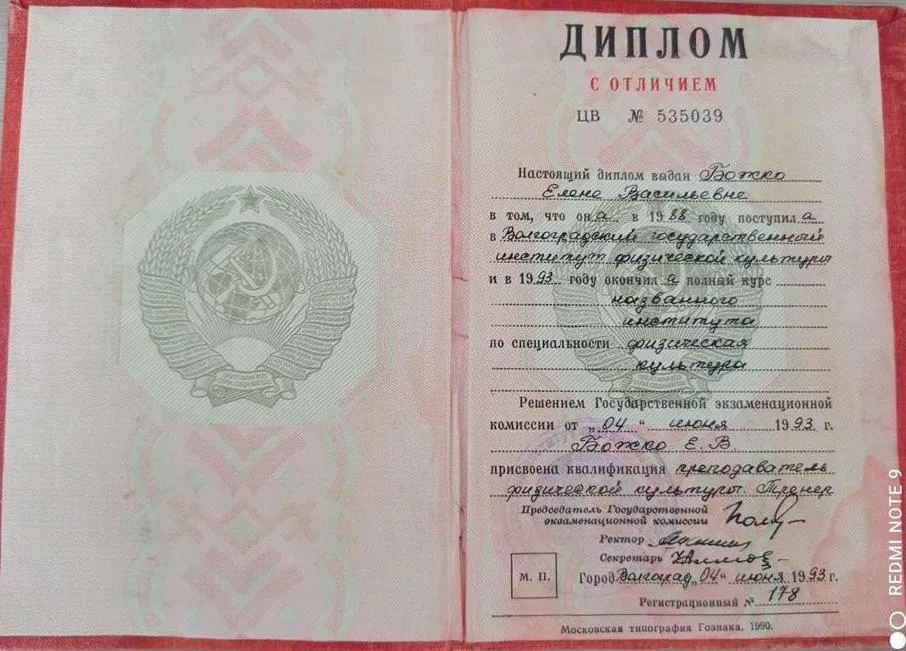 ДИПЛОМ
С ОТЛИЧИЕМ
ЦВ № 535039
Настоящий диплом выдан Божко
Елене Васильевне
в том, что она в 1988 году поступила
в Волгоградский государственный
институт физической культуры
и в 1993 году окончила полный курс
названного
института
по специальности физическая
культура
Решением Государственной экзаменационной
комиссии от „04“ июня 1993 г.
Божко Е. В.
присвоена квалификация преподаватель
физической культуры. Тренер
Председатель Государственной
экзаменационной комиссии
Ректор
Секретарь
М. П.
Город Волгоград „04“ июня 1993 г.
Регистрационный № 178
Московская типография Гознака. 1990.
REDMI NOTE 9